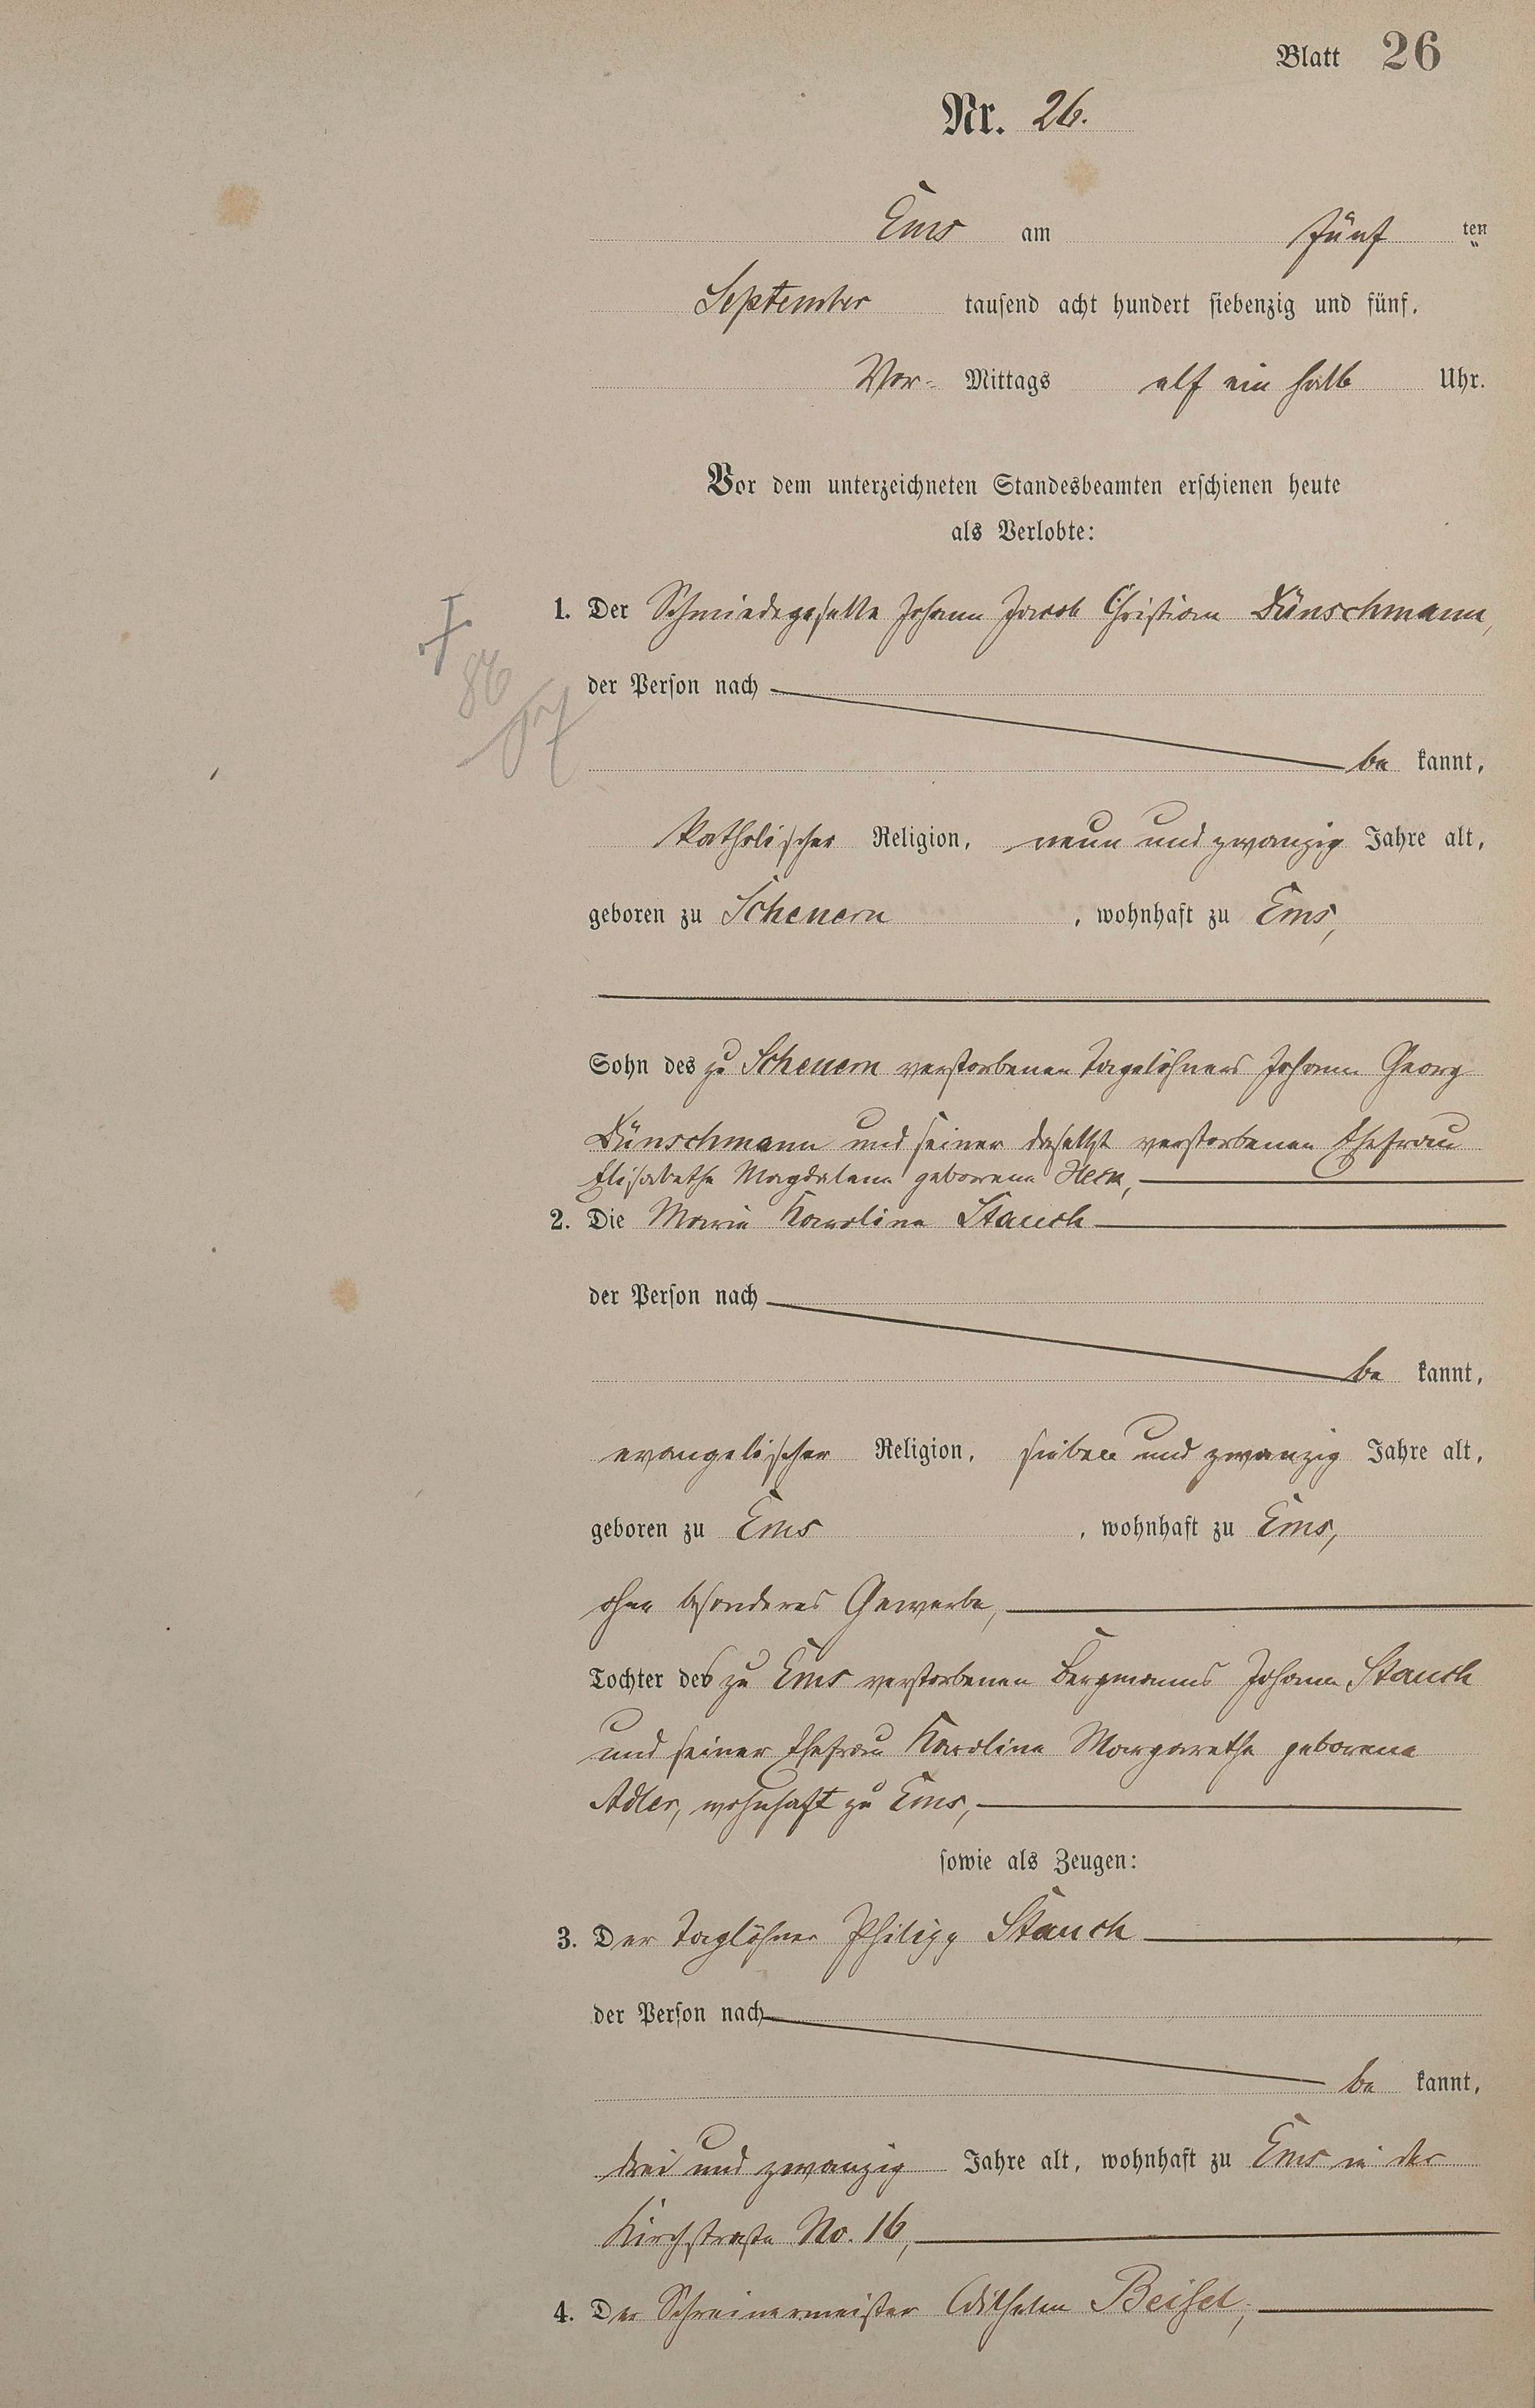 Blatt 26
Nr. 26.
Ems am fünf ten
September tausend acht hundert siebenzig und fünf.
Vor- Mittags elf ein halb Uhr.
Vor dem unterzeichneten Standesbeamten erschienen heute
als Verlobte:
1. Der Schmiedegeselle Johann Jacob Christian Dünschmann,
der Person nach
be kannt,
katholischer Religion, neun und zwanzig Jahre alt,
geboren zu Scheuern, wohnhaft zu Ems,
Sohn des zu Scheuern verstorbenen Tagelöhners Johann Georg
Dünschmann und seiner daselbst verstorbenen Ehefrau
Elisabethe Magdalena geborene
2. Die Maria Karolina Stauch
der Person nach
be kannt,
evangelischer Religion, sieben und zwanzig Jahre alt,
geboren zu Ems, wohnhaft zu Ems,
ohne besonderes Gewerbe,
Tochter des zu Ems verstorbenen Bergmanns Johann Stauch
und seiner Ehefrau Karoline Margarethe geborene
Adler, wohnhaft zu Ems,
sowie als Zeugen:
3. Der Taglöhner Philipp Stauch
der Person nach
be kannt,
drei und zwanzig Jahre alt, wohnhaft zu Ems in der
Kirchstraße No. 16,
4. Der Schreinermeister Wilhelm Beisel,